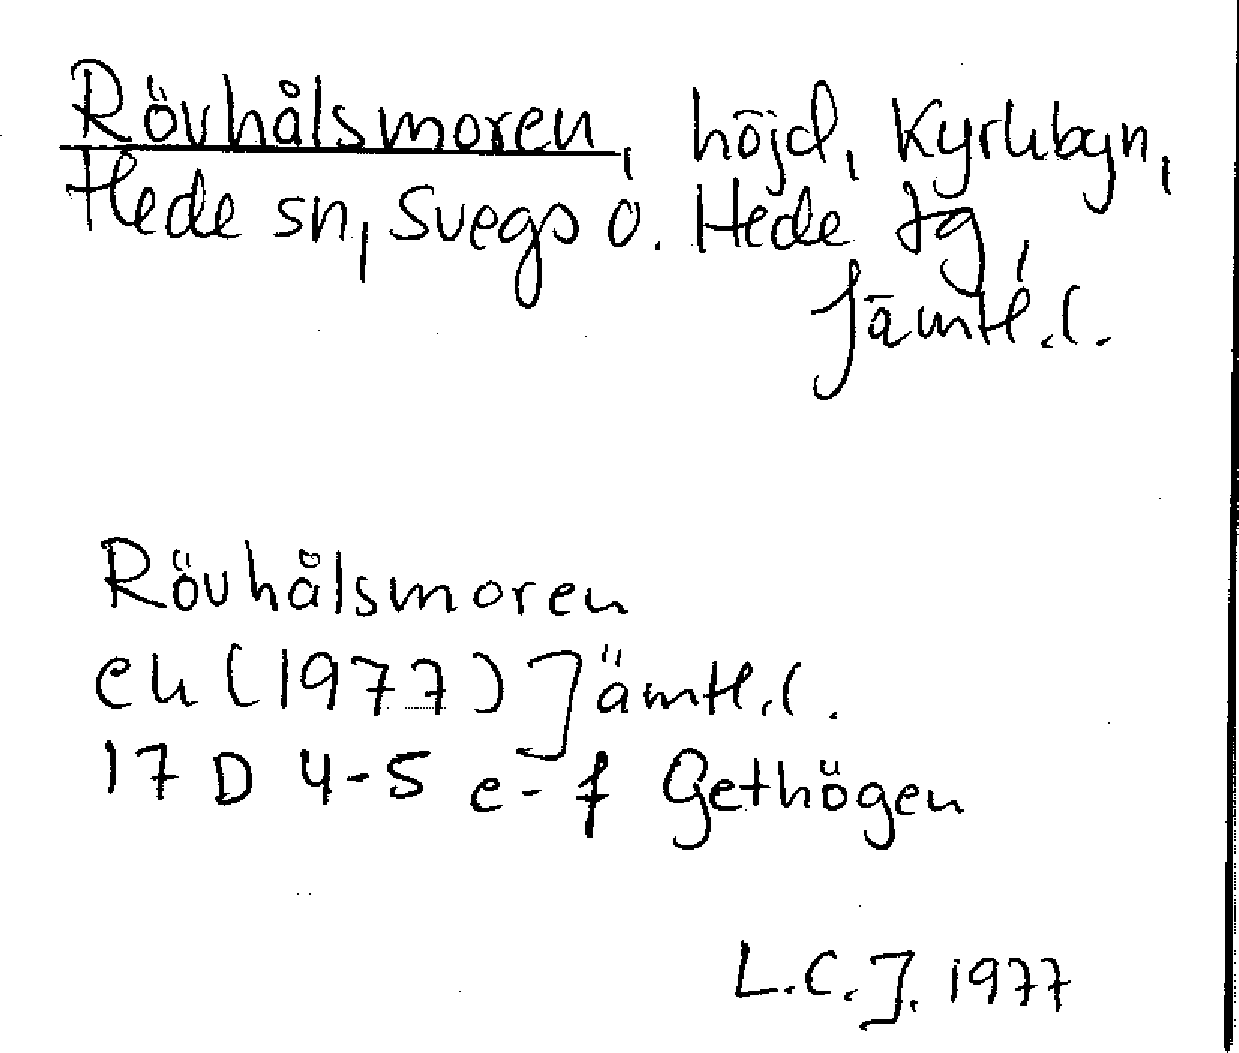 Rövhålsmoren, höjd, Kyrkbyn,
Hede sn, Svegs o. Hede tg,
Jämtl.l.
Rövhålsmoren
ek (1977) Jämtl.l.
17 D 4-5 e-f Gethögen
L.C.J. 1977